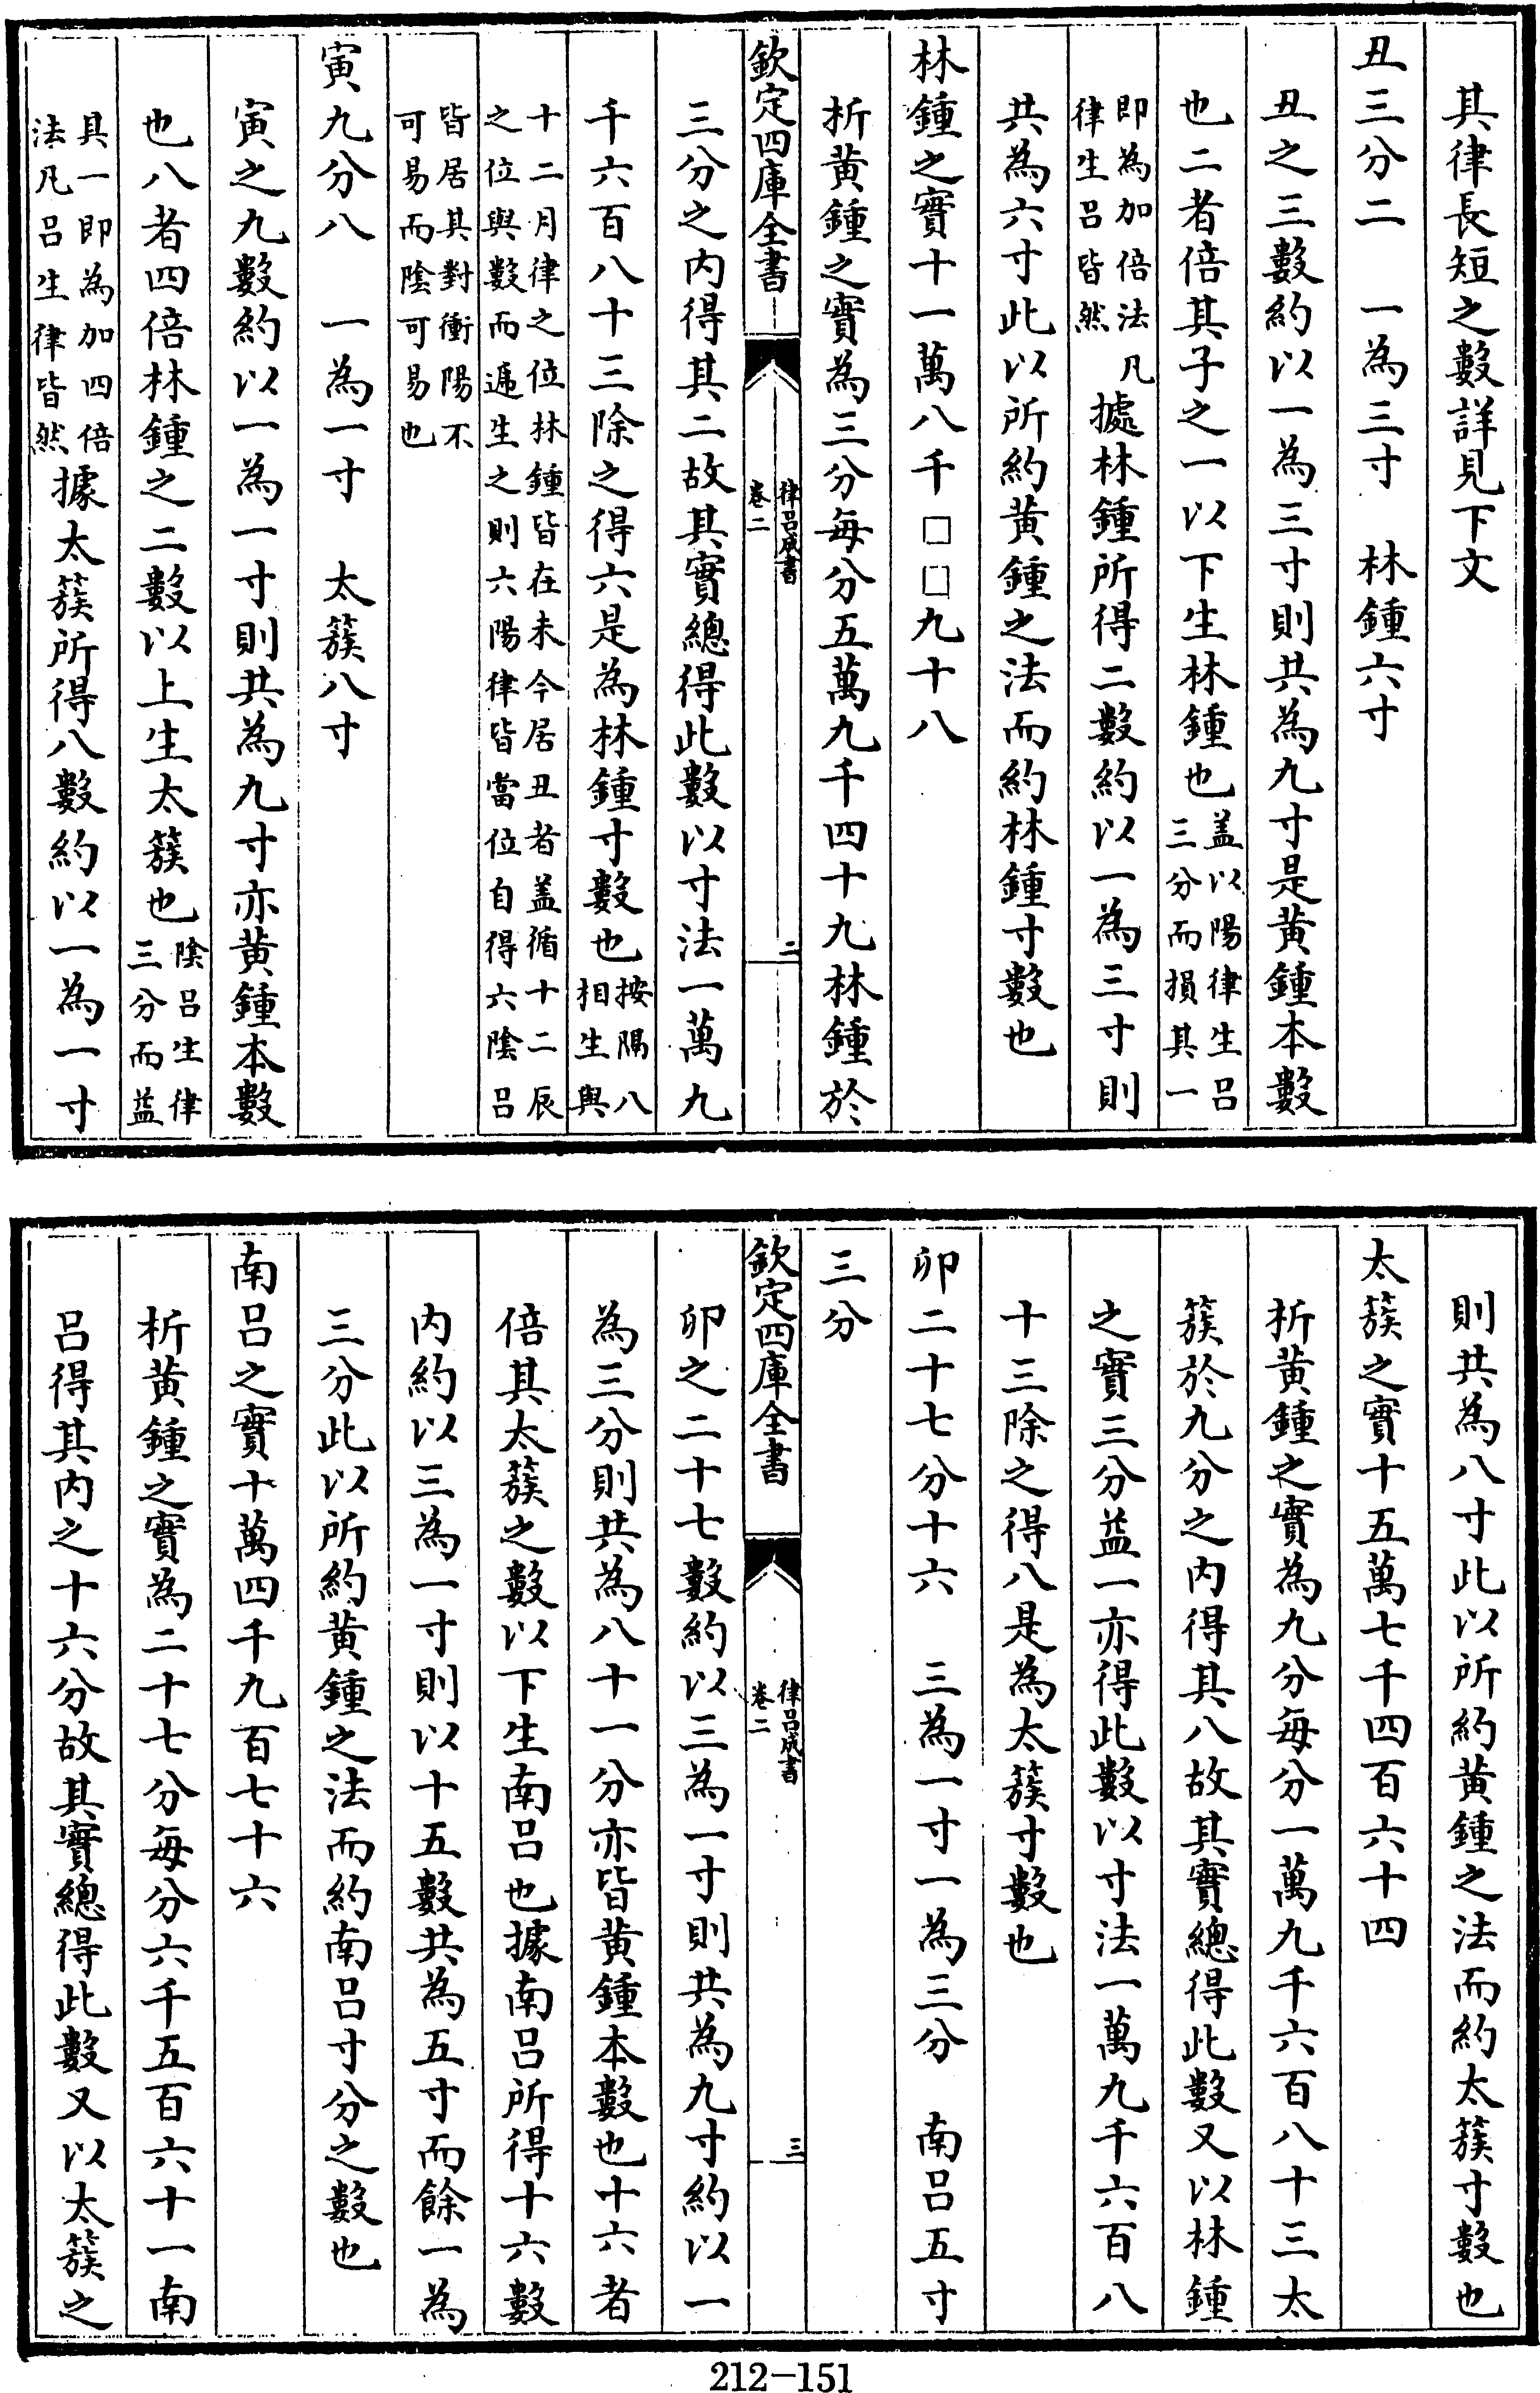 其律長短之數詳見下文
丑三分二　一為三寸　林鍾六寸
丑之三數約以一為三寸則共為九寸是黃鍾本數
也二者倍其子之一以下生林鍾也盖以陽律生吕三分而損其一
即為加倍法凡律生吕皆然據林鍾所得二數約以一為三寸則
共為六寸此以所約黃鍾之法而約林鍾寸數也
林鍾之實十一萬八千□□九十八
析黃鍾之實為三分每分五萬九千四十九林鍾於
欽定四庫全書　律吕成書　卷二　二
三分之内得其二故其實總得此數以寸法一萬九
千六百八十三除之得六是為林鍾寸數也按隔八相生與
十二月律之位林鍾皆在未今居丑者盖循十二辰
之位與數而遞生之則六陽律皆當位自得六陰吕
皆居其對衝陽不
可易而陰可易也
寅九分八　一為一寸　太簇八寸
寅之九數約以一為一寸則共為九寸亦黃鍾本數
也八者四倍林鍾之二數以上生太簇也陰吕生律三分而益
具一即為加四倍法凡吕生律皆然據太簇所得八數約以一為一寸
則共為八寸此以所約黃鍾之法而約太簇寸數也
太簇之實十五萬七千四百六十四
析黃鍾之實為九分每分一萬九千六百八十三太
簇於九分之内得其八故其實總得此數又以林鍾
之實三分益一亦得此數以寸法一萬九千六百八
十三除之得八是為太簇寸數也
卯二十七分十六　三為一寸一為三分　南吕五寸
三分
欽定四庫全書　律吕成書　卷二　三
卯之二十七數約以三為一寸則共為九寸約以一
為三分則共為八十一分亦皆黃鍾本數也十六者
倍其太簇之數以下生南吕也據南吕所得十六數
内約以三為一寸則以十五數共為五寸而餘一為
三分此以所約黃鍾之法而約南吕寸分之數也
南吕之實十萬四千九百七十六
析黃鍾之實為二十七分每分六千五百六十一南
吕得其内之十六分故其實總得此數又以太簇之
212-151